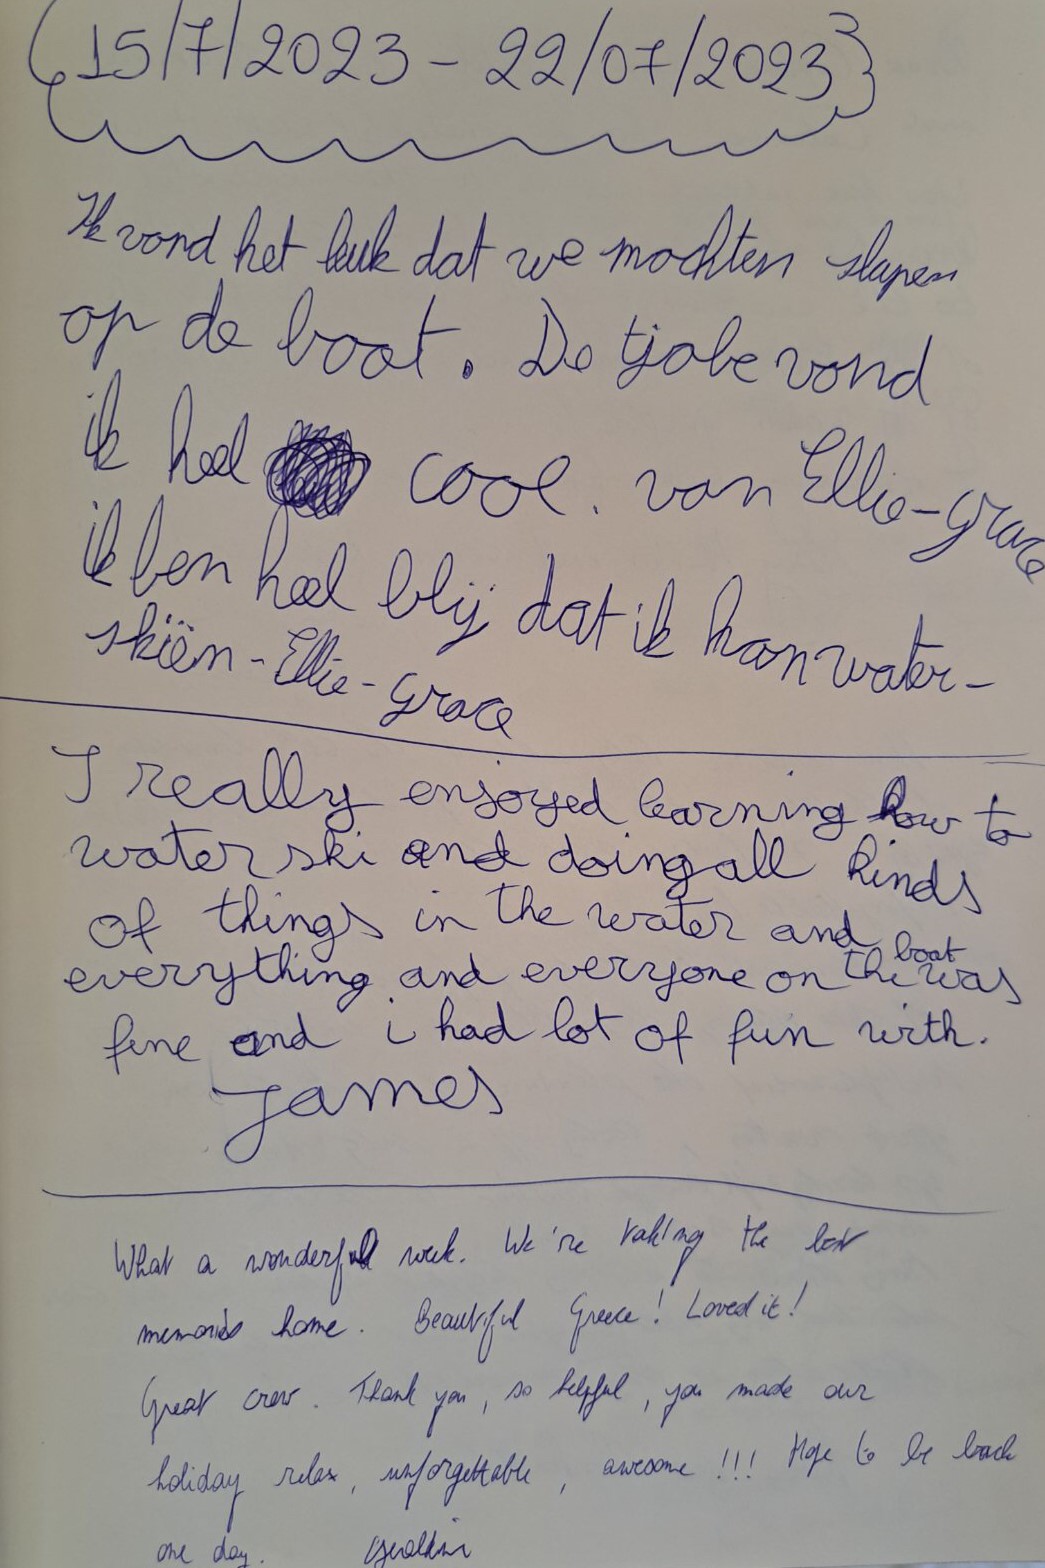 15/7/2023 - 22/07/2023
Ik vond het leuk dat we mochten slapen
op de boot. De tjobe vond
ik heel cool. van Ellie-grace
ik ben heel blij dat ik kan water-
skiën - Ellie-grace
I really enjoyed learning how to
water ski and doing all kinds
of things in the water and
everything and everyone on the boat was
fine and i had lot of fun with.
James
What a wonderful week. We're taking the best
memories home. Beautiful Greece! Loved it!
Great crew. Thank you, so helpful, you made our
holiday relax, unforgettable, awesome!!! Hope to be back
one day.